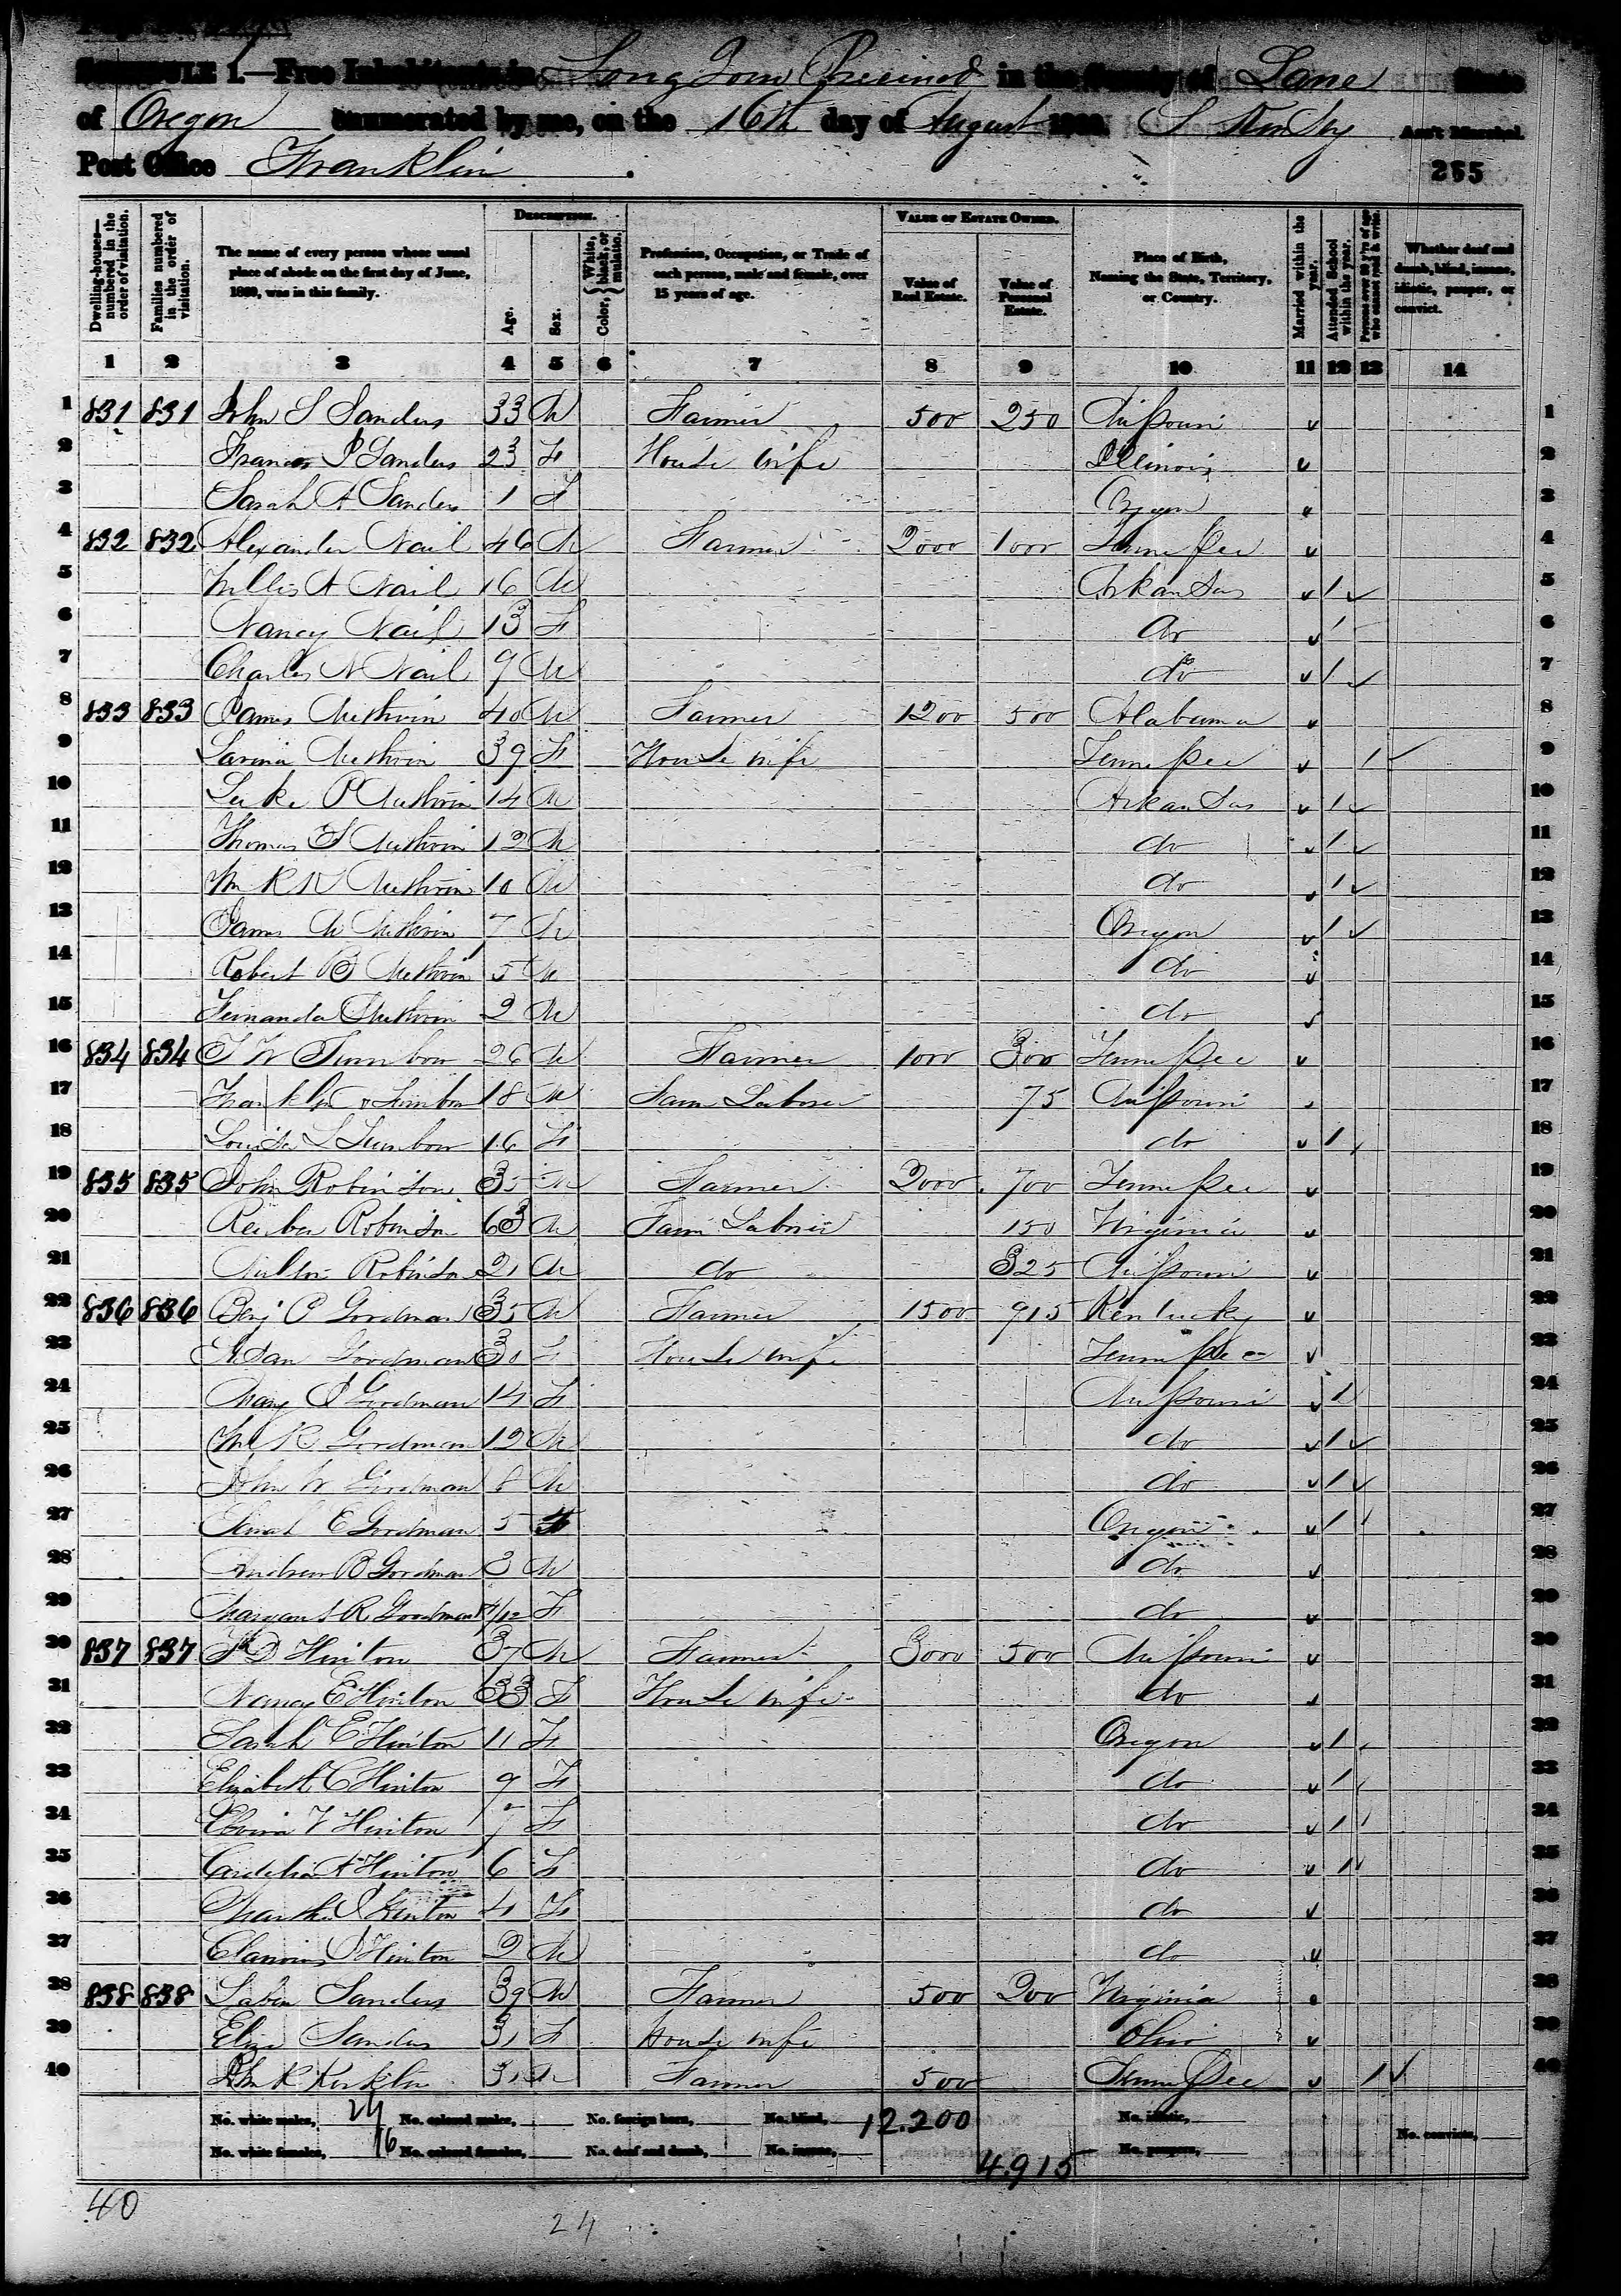 SCHEDULE 1.—Free Inhabitants in Long Tom Precinct in the County of Lane State
of Oregon enumerated by me, on the 16th day of August 1860. Ass't Marshal.
Post Office Franklin . 255
Dwelling-houses—numbered in the order of visitation.
Families numbered in the order of visitation.
The name of every person whose usual place of abode on the first day of June, 1860, was in this family.
Description.
Age.
Sex.
Color, {White, black, or mulatto.
Profession, Occupation, or Trade of each person, male and female, over 15 years of age.
Value of Estate Owned.
Value of Real Estate.
Value of Personal Estate.
Place of Birth, Naming the State, Territory, or Country.
Married within the year.
Attended School within the year.
Persons over 20 y'rs of age who cannot read & write.
Whether deaf and dumb, blind, insane, idiotic, pauper, or convict.
1 2 3 4 5 6 7 8 9 10 11 12 13 14
1 831 831 John S Sanders 33 M Farmer 500 250 Missouri 1
2 Frances J Sanders 23 F House wife Illinois 2
3 Sarah A Sanders 1 F Oregon 3
4 832 832 Alexander Nail 46 M Farmer 2000 1000 Tennessee 4
5 Willis A Nail 16 M Arkansas 1 5
6 Nancy Nail 13 F do 1 6
7 Charles N Nail 9 M do 1 7
8 833 833 James Methvin 40 M Farmer 1200 500 Alabama 8
9 Lavina Methvin 39 F House wife Tennessee 1 9
10 Luke P Methvin 14 M Arkansas 1 10
11 Thomas S Methvin 12 M do 1 11
12 Wm R N Methvin 10 M do 1 12
13 James M Methvin 7 M Oregon 1 13
14 Robert B Methvin 5 M do 14
15 Fernanda Methvin 2 M do 15
16 834 834 T W Turnbow 26 M Farmer 1000 300 Tennessee 16
17 Franklin Turnbow 18 M Farm Laborer 75 Missouri 17
18 Louisa L Turnbow 16 F do 1 18
19 835 835 John Robinson 35 M Farmer 2000 700 Tennessee 19
20 Robinson 63 M Farm Laborer 150 Virginia 20
21 Milton Robinson 21 M do 325 Missouri 21
22 836 836 Benj P Goodman 35 M Farmer 1500 915 Kentucky 22
23 Susan Goodman 30 F House wife Tennessee 23
24 Mary J Goodman 14 F Missouri 1 24
25 Wm R Goodman 12 M do 1 25
26 John W Goodman 8 M do 1 26
27 Sarah E Goodman 5 F Oregon 1 27
28 Andrew B Goodman 3 M do 28
29 Margaret R Goodman /12 F do 29
30 837 837 D Hinton 37 M Farmer 3000 500 Missouri 30
31 Nancy E Hinton 33 F House wife do 31
32 Sarah E Hinton 11 F Oregon 1 32
33 Elizabeth C Hinton 9 F do 1 33
34 V Hinton 7 F do 1 34
35 Cordelia A Hinton 6 F do 1 35
36 Martha J Hinton 4 F do 36
37 Hinton 2 M do 37
38 838 838 Sanders 39 M Farmer 500 200 Virginia 38
39 Eliza Sanders 31 F House wife Ohio 39
40 R 31 M Farmer 500 Tennessee 1 40
No. white males, 24 No. colored males, No. foreign born, No. blind, 12.200 No. idiotic,
No. white females, 16 No. colored females, No. deaf and dumb, No. insane, 4.915 No. paupers, No. convicts,
40
24